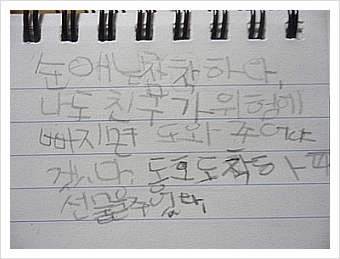 순애는참착하다,
나도 친구가 위험에
빠지면 도와 주어야
겠다. 동모도착하
선물을주었다,